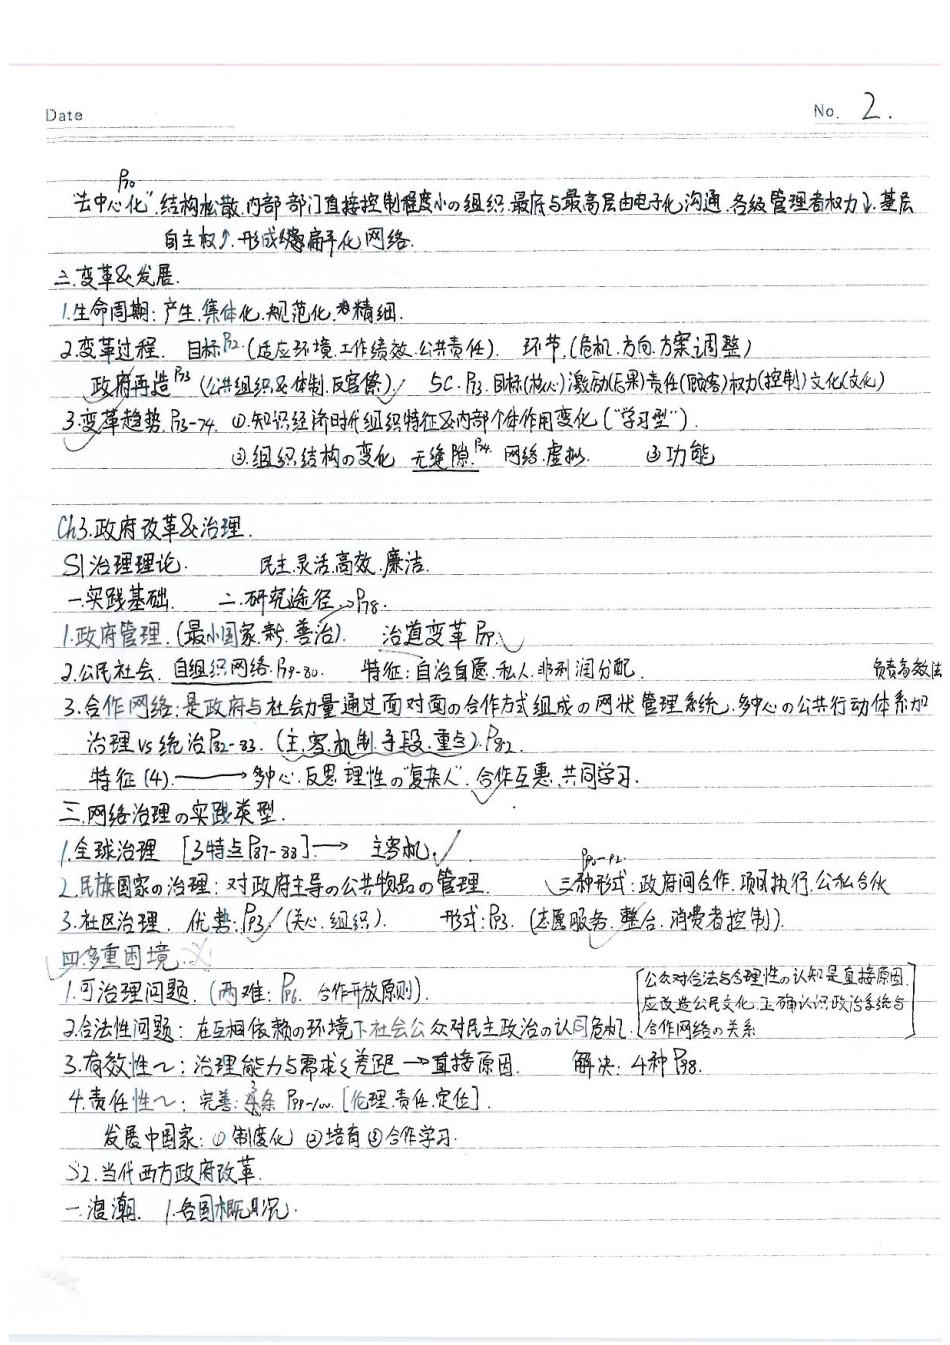 Date
No. 2.
P70
"去中心化".结构松散.内部部门直接控制程度小の组织.最底与最高层由电子化沟通.各级管理者权力↓.基层
自主权↑.形成扁平化网络.
三.变革&发展.
1.生命周期:产生.集体化.规范化.精细.
2.变革过程. 目标P72.(适应环境.工作绩效.公共责任). 环节.(危机.方向.方案.调整)
政府再造P73 (公共组织&体制.反官僚). 5C.P73.目标(核心)激励(后果)责任(顾客)权力(控制)文化(文化)
3.变革趋势.P73-74. ①.知识经济时代组织特征&内部个体作用变化("学习型").
②.组织结构の变化 无缝隙.P74. 网络.虚拟. ③功能
Ch3.政府改革&治理.
S1治理理论. 民主.灵活.高效.廉洁.
一.实践基础. 二.研究途径→P78.
1.政府管理.(最小国家.新.善治). 治道变革
2.公民社会.自组织网络.P79-80. 特征:自治自愿.私人.非利润分配. 负责高效法
3.合作网络:是政府与社会力量通过面对面の合作方式组成の网状管理系统.多中心の公共行动体系
治理vs统治P82-83.(主.客.机制.手段.重点).P82.
特征(4).→多中心.反思理性の"复杂人".合作互惠.共同学习.
三.网络治理の实践类型.
1.全球治理 [3特点P87-88].→ 主客机.
P90-92.
2.民族国家の治理:对政府主导の公共物品の管理. 三种形式:政府间合作.项目执行.公私合伙
3.社区治理. 优势:P93 (关心.组织). 形式:P93.(志愿服务.整合.消费者控制).
四.多重困境.
1.可治理问题.(两难:P96.合作开放原则). [公众对合法与合理性の认知是直接原因.
应改造公民文化.正确认识政治系统与
2.合法性问题:在互相依赖の环境下社会公众对民主政治の认同危机. 合作网络の关系]
3.有效性~:治理能力与需求之差距→直接原因. 解决:4种P98.
4.责任性~:完善: P99-100.[伦理.责任.定位].
发展中国家:①制度化 ②培育③合作学习.
S2.当代西方政府改革.
一.浪潮. 1.各国概况.